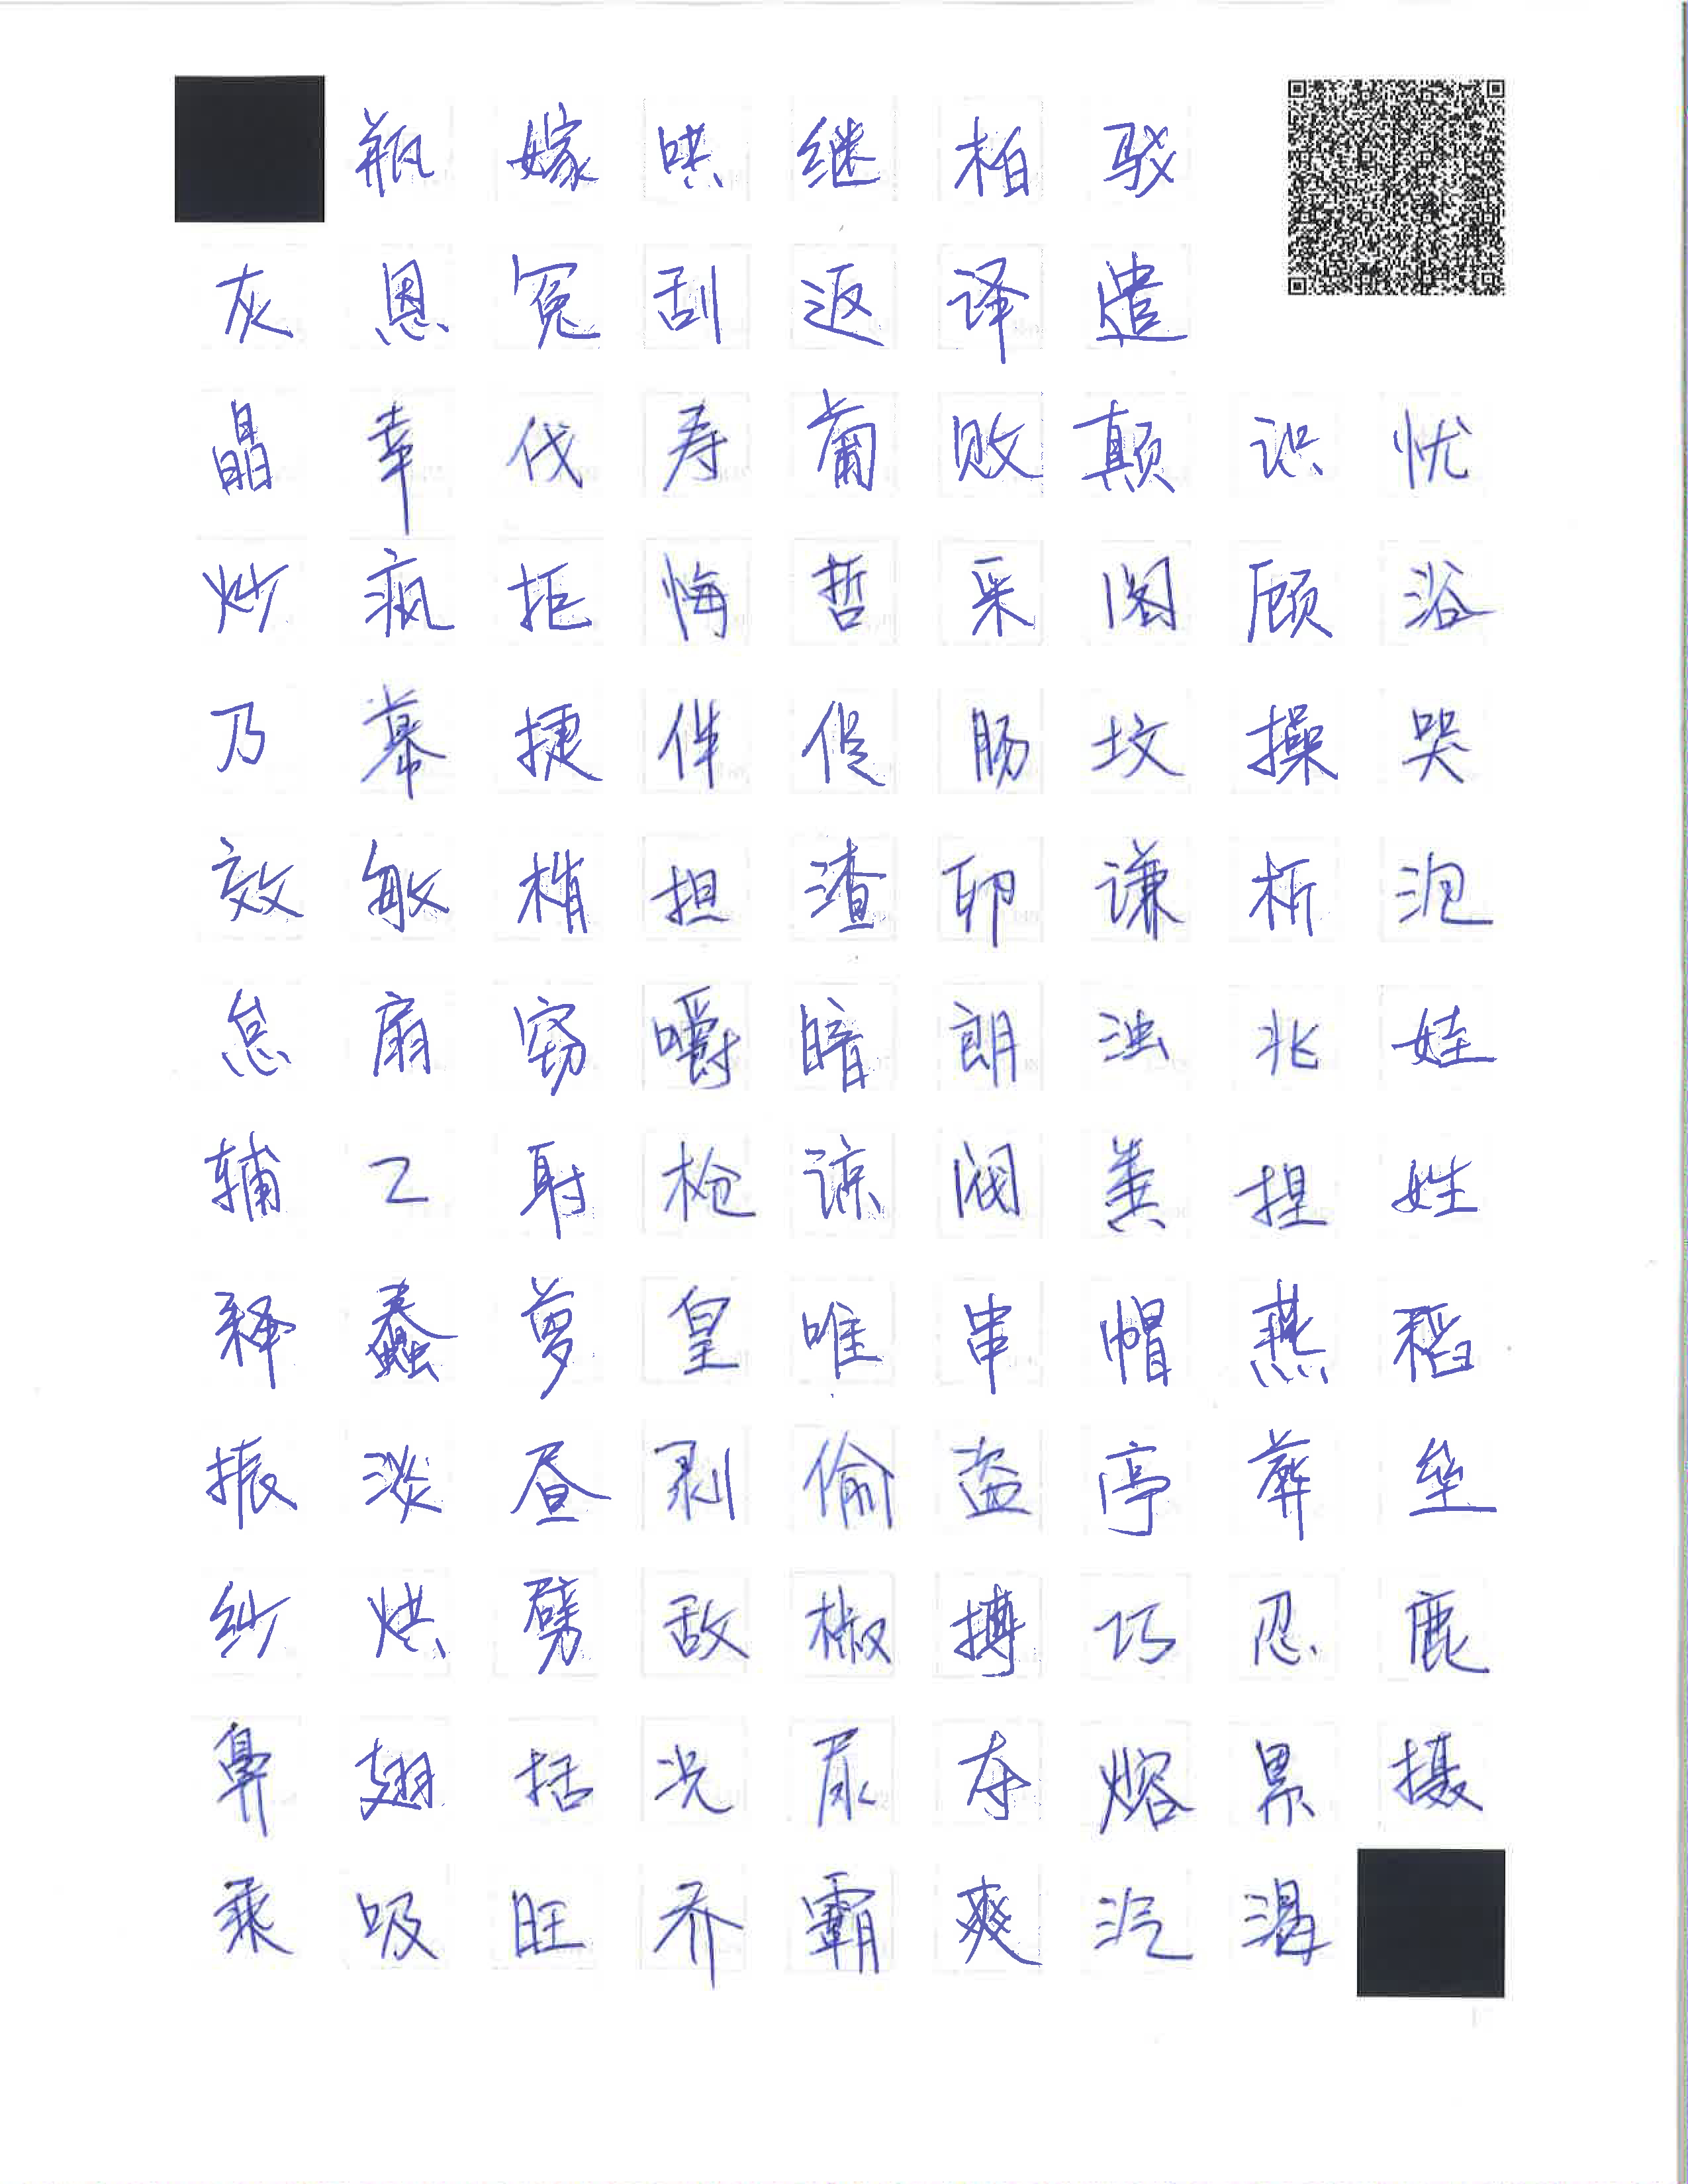 瓶嫁哄继柏驳
灰恩冤刮返译遣
晶幸伐寿葡败颠识忧
炒疯拒悔哲采阁顾浴
乃幕捷伴促肠坟操哭
效敏梢担渣卵谦析泡
怠扇窃嚼暗朗浊兆娃
辅乙射枪谅阀粪捏姓
释蠢萝皇唯串帽燕稻
振淡昼剥偷盗亭葬垒
纱烘劈敌椒搏巧忍鹿
鼻翅括光尿夺熔累摄
乘吸旺乔霸爽汽渴